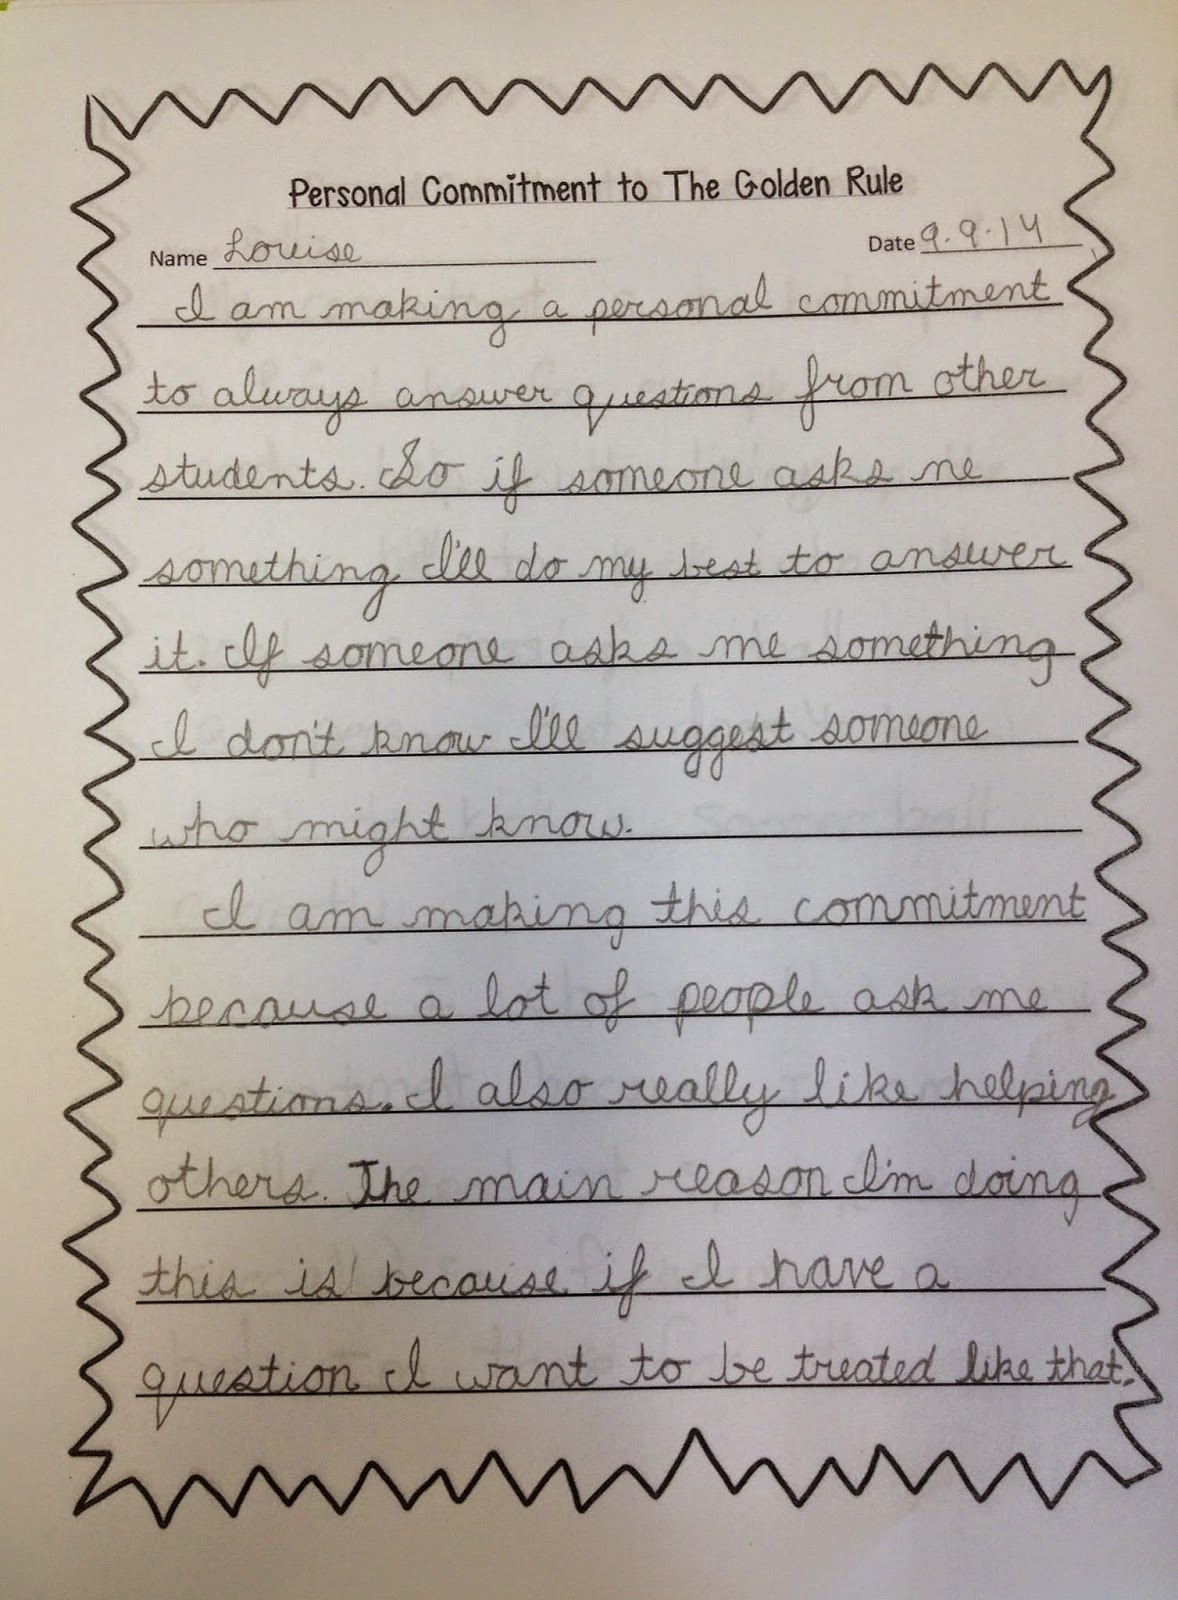 Personal Commitment to The Golden Rule
Name Louise Date 9.9.14
I am making a personal commitment
to always answer questions from other
students. So if someone asks me
something I'll do my best to answer
it. If someone asks me something
I don't know I'll suggest someone
who might know.
I am making this commitment
because a lot of people ask me
questions. I also really like helping
others. The main reason I'm doing
this is because if I have a
question I want to be treated like that.